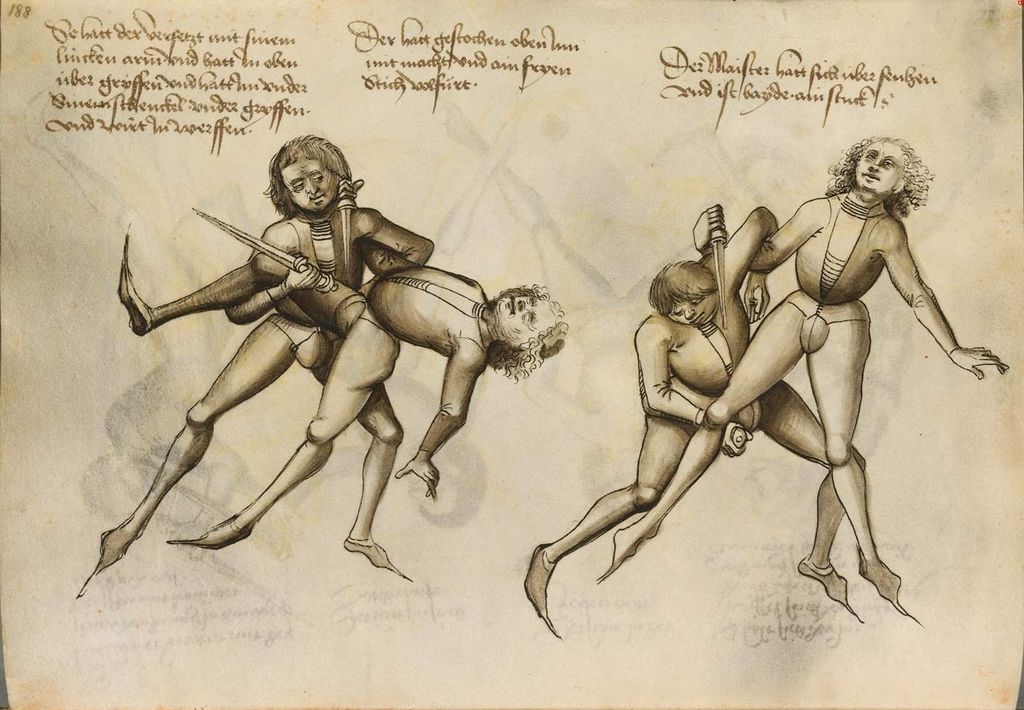 188
So hatt der versetzt mit sinem
lincken arm vnd hatt in oben
über gryffen vnd hatt in vnder
Sinem schenckel vnder gryffen
vnd wirt in werffen.
Der hatt gestochen oben
mit macht vnd ain fryen
Stich volfürt.
Der Maister hatt sich über
vnd ist bayde ain stuck